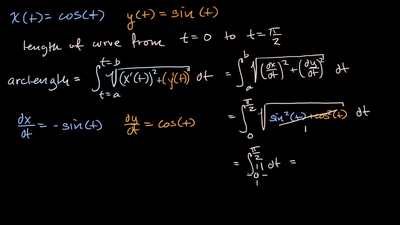 x(t) = cos(t) y(t) = sin(t)
length of curve from t=0 to t=π/2
arclength = ∫_{t=a}^{t=b} √((x'(t))²+(y(t))) dt = ∫_a^b √((dx/dt)²+(dy/dt)²) dt
dx/dt = -sin(t) dy/dt = cos(t) = ∫_0^{π/2} √(sin²(t)+cos²(t)) dt
1
= ∫_0^{π/2} 1 dt =